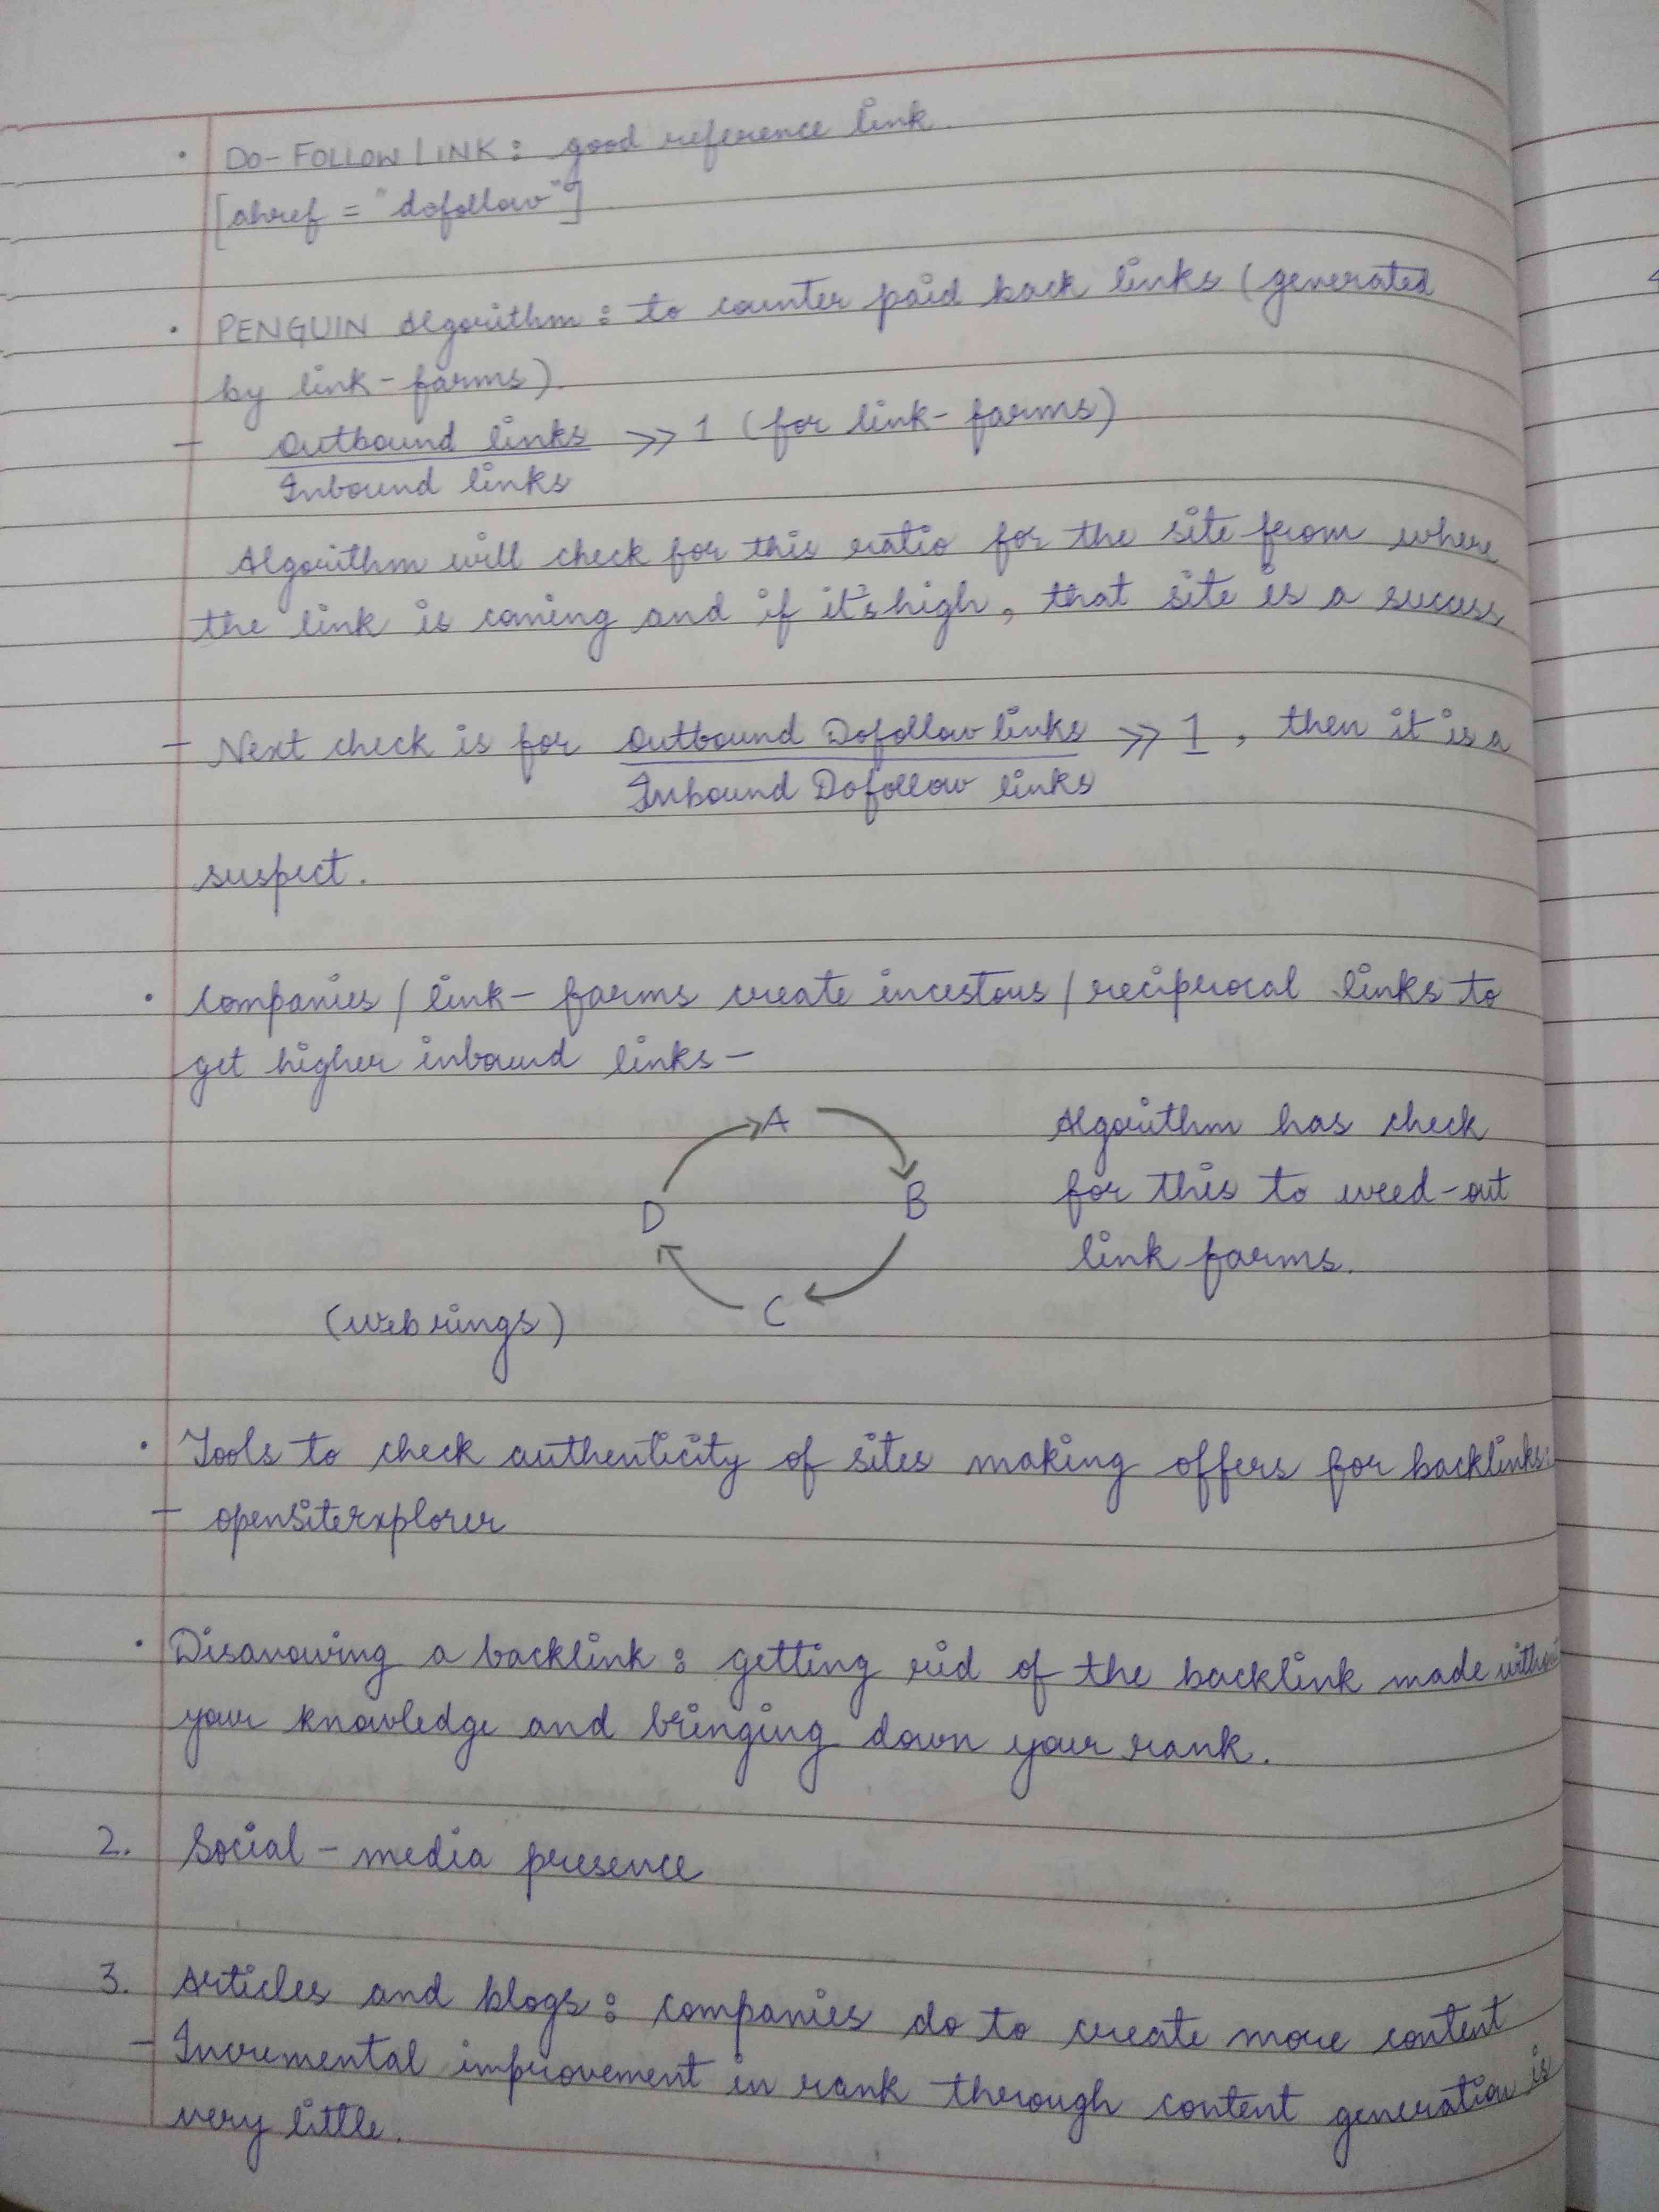 · DO-FOLLOW LINK : good reference link.
[ahref = "dofollow"]
· PENGUIN Algorithm : to counter paid back links (generated
by link-farms).
- Outbound links >> 1 (for link-farms)
Inbound links
Algorithm will check for this ratio for the site from where
the link is coming and if it's high, that site is a success
- Next check is for Outbound Dofollow links >> 1, then it is a
Inbound Dofollow links
suspect.
· Companies / link-farms create incestous / reciprocal links to
get higher inbound links -
A
Algorithm has check
D
B
for this to weed-out
link farms.
C
(webrings)
· Tools to check authenticity of sites making offers for backlinks:
- openSiteExplorer
· Disavowing a backlink : getting rid of the backlink made
your knowledge and bringing down your rank.
2. Social-media presence
3. Articles and blogs : companies do to create more content
- Incremental improvement in rank through content generation is
very little.